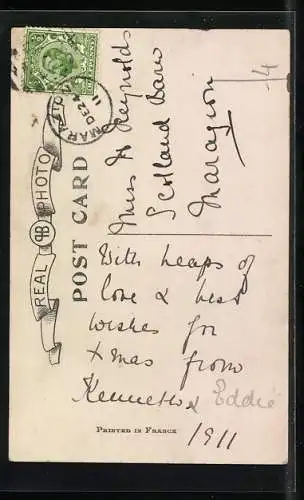 MARAZION
DE 24
11
REAL PHOTO
POST CARD
Miss H Reynolds
Scotland Barn
Marazion
4
With heaps of
love & best
wishes for
Xmas from
Kenneth & Eddie
1911
PRINTED IN FRANCE